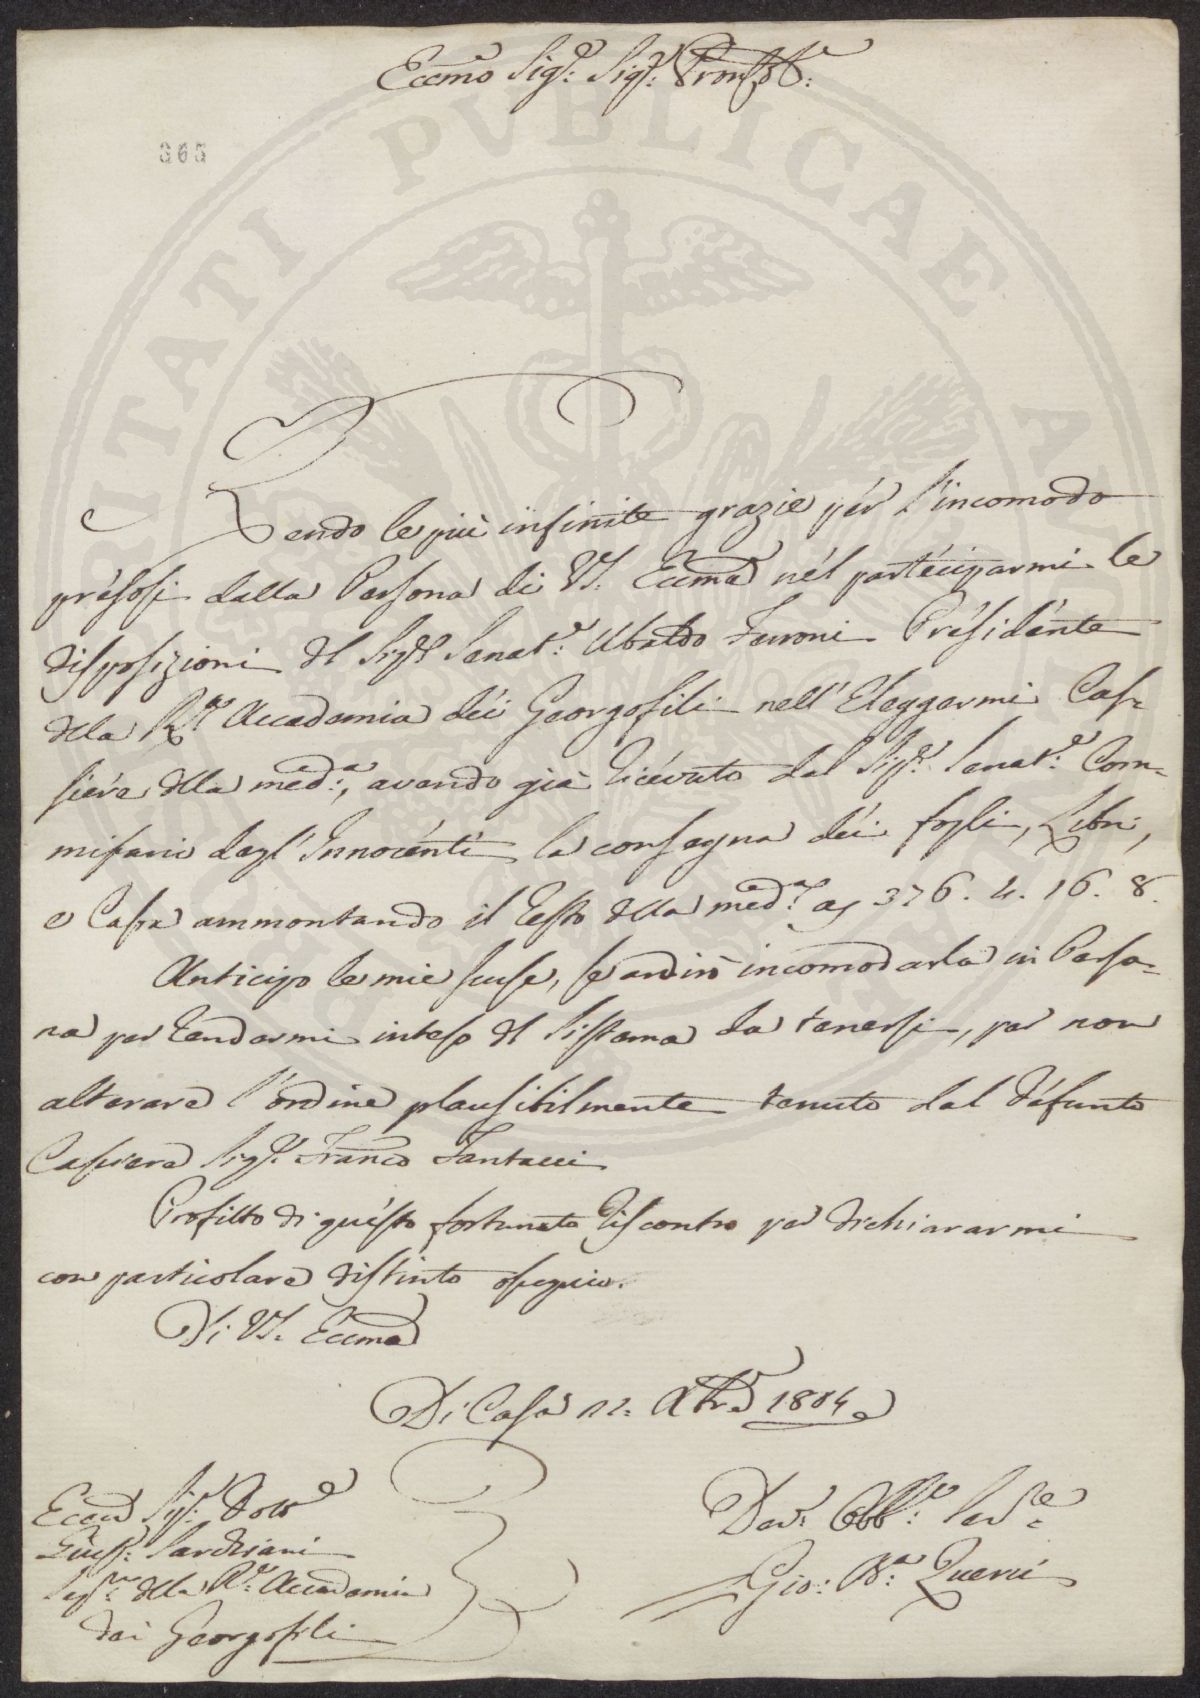 Eccmo Sigre: Sigre: Pron Co:
365
PROSPERITATI PVBLICAE AVGENDAE
Rendo le più infinite grazie per l'incomodo
presosi dalla Persona di VS. Eccma nel parteciparmi le
disposizioni del Sigre Senatre: Ubaldo Feroni Presidente
della Rle Accademia dei Georgofili nell'Eleggermi Cas-
siere della meda:, avendo già ricevuto dal Sigre: Senatre: Com-
missario degl'Innocenti la consegna dei fogli, Libri,
e Cassa ammontando il resto della meda: a 376. 4. 16. 8.
Anticipo le mie scuse, se ardirò incomodarla in Perso-
na per rendermi inteso del Sistema da tenersi, per non
alterare l'ordine plausibilmente tenuto dal defunto
Cassiere Sigre: Franco Fantacci
Profitto di questo fortunato riscontro per dichiararmi
con particolare distinto ossequio.
Di VS. Eccma
Di Casa 12. Xbre 1804
Eccmo Sigre: Dotte
Giuse: Sarchiani
Segrio: della Rle: Accademia
dei Georgofili
Devo: Obbo: Serre:
Gio: Bta: Querci